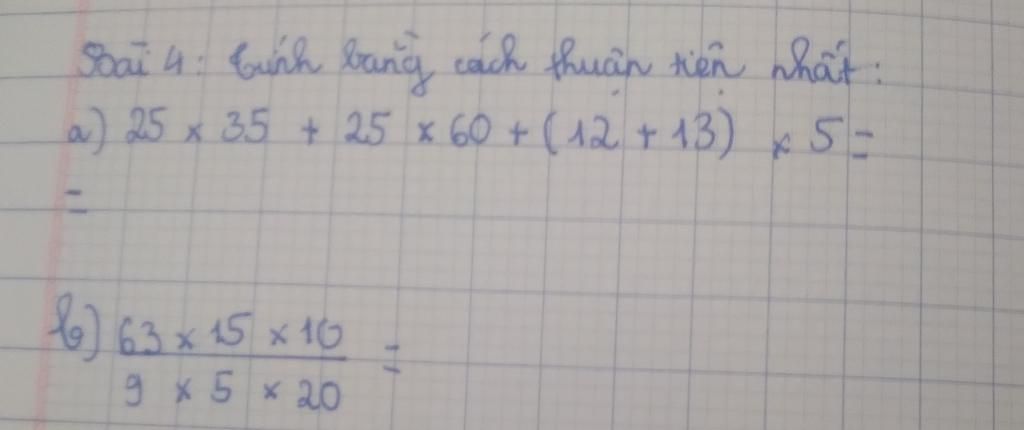 Bài 4: tính bằng cách thuận tiện nhất:
a) 25 × 35 + 25 × 60 + (12 + 13) × 5 =
=
b) 63 × 15 × 10 =
9 × 5 × 20